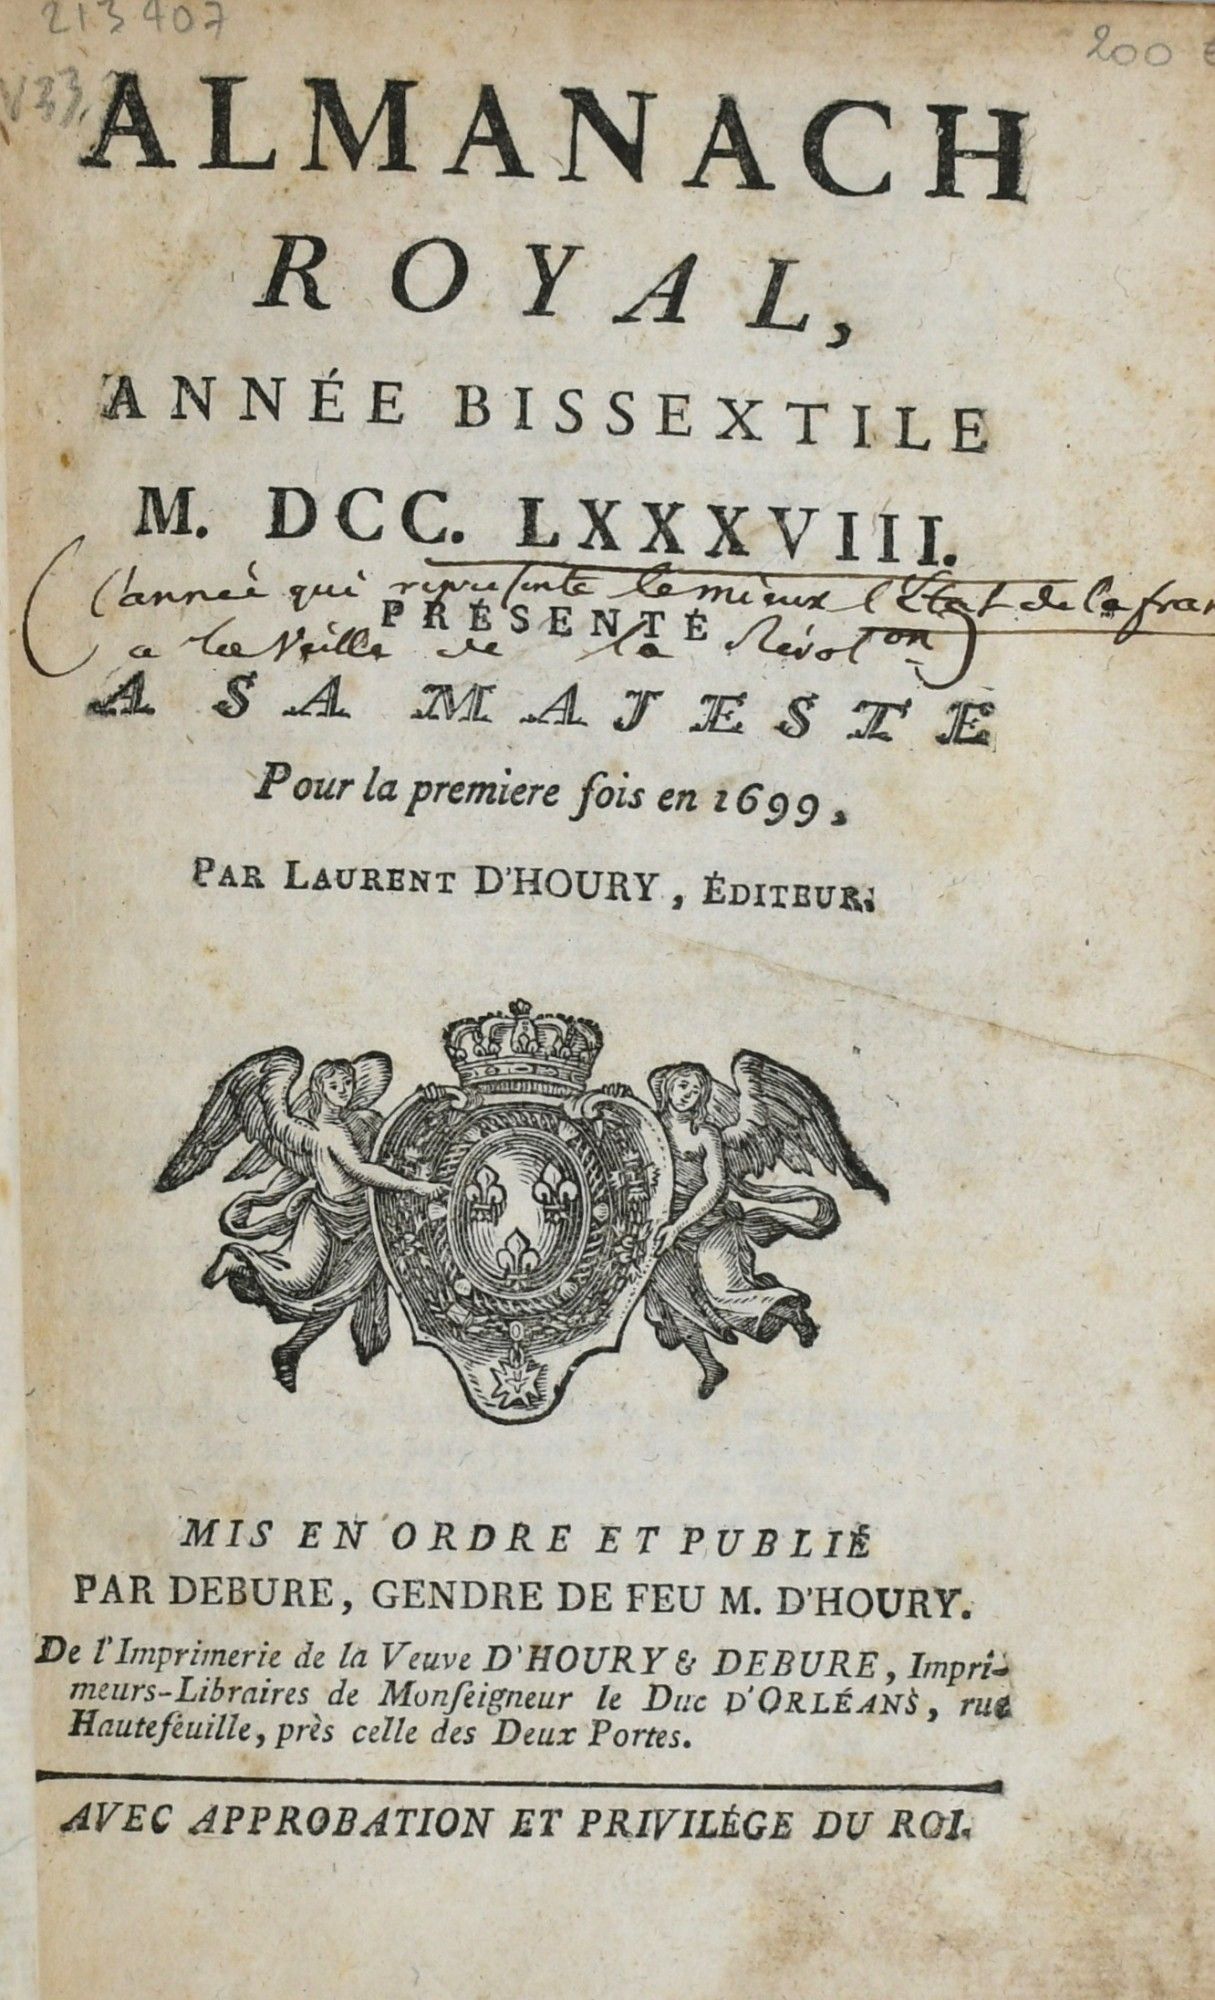 213407
200 €
V33.
ALMANACH
ROYAL,
ANNÉE BISSEXTILE
M. DCC. LXXXVIII.
(l'année qui represente le mieux l'Etat de la fran
PRÉSENTÉ
a la veille de la Révolon)
A SA MAJESTE
Pour la premiere fois en 1699,
PAR LAURENT D'HOURY, ÉDITEUR.
MIS EN ORDRE ET PUBLIÉ
PAR DEBURE, GENDRE DE FEU M. D'HOURY.
De l'Imprimerie de la Veuve D'HOURY & DEBURE, Impri-
meurs-Libraires de Monſeigneur le Duc D'ORLÉANS, rue
Hautefeuille, près celle des Deux Portes.
AVEC APPROBATION ET PRIVILÉGE DU ROI.